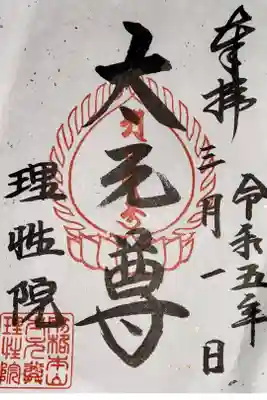 奉拝
令和五年
三月一日
大元尊
理性院